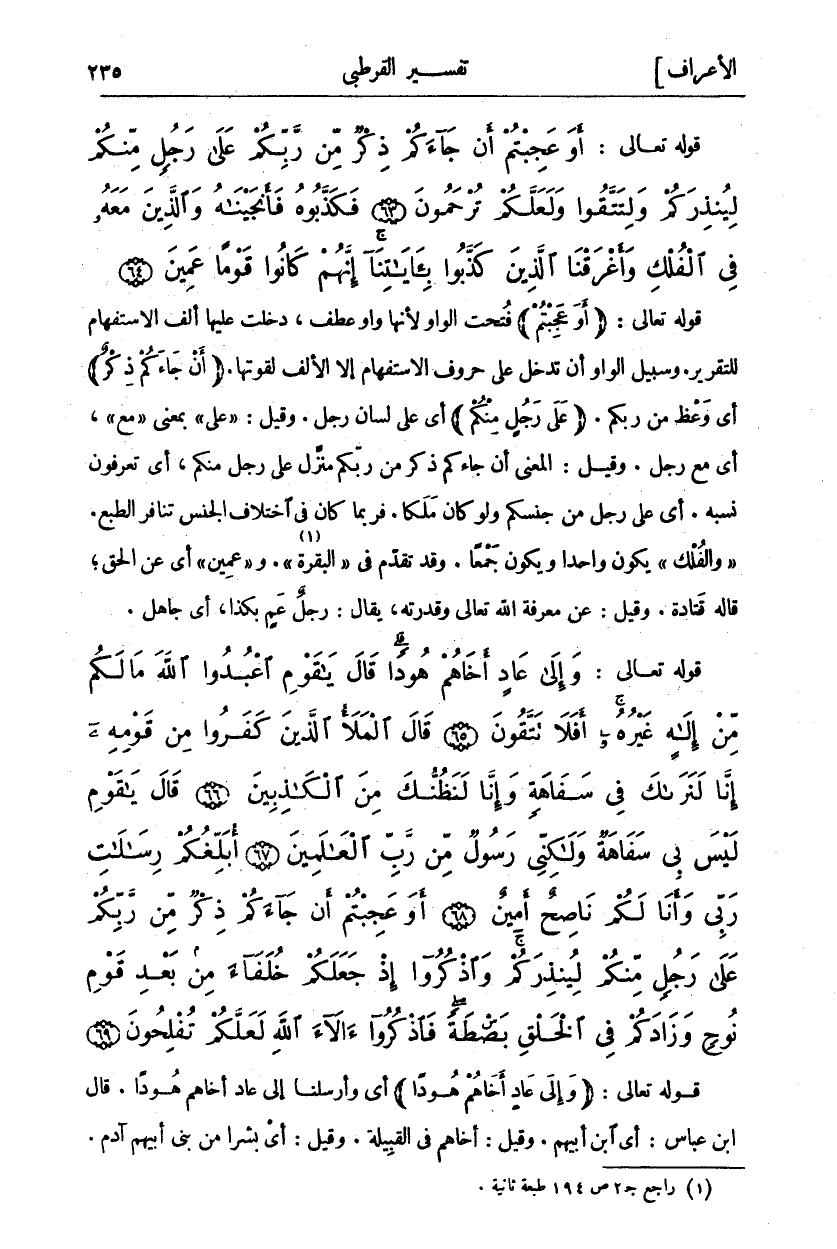 الأعراف]
تفسير القرطبي
٢٣٥
قوله تعالى : أَوَ عَجِبْتُمْ أَن جَآءَكُمْ ذِكْرٌ مِّن رَّبِّكُمْ عَلَىٰ رَجُلٍ مِّنكُمْ
لِيُنذِرَكُمْ وَلِتَتَّقُوا وَلَعَلَّكُمْ تُرْحَمُونَ ﴿٦٣﴾ فَكَذَّبُوهُ فَأَنجَيْنَٰهُ وَٱلَّذِينَ مَعَهُۥ
فِى ٱلْفُلْكِ وَأَغْرَقْنَا ٱلَّذِينَ كَذَّبُوا بِـَٔايَٰتِنَآ ۚ إِنَّهُمْ كَانُوا قَوْمًا عَمِينَ ﴿٦٤﴾
قوله تعالى : ﴿ أَوَ عَجِبْتُمْ ﴾ فُتحت الواو لأنها واو عطف ، دخلت عليها ألف الاستفهام
للتقرير. وسبيل الواو أن تدخل على حروف الاستفهام إلا الألف لقوتها. ﴿ أَنْ جَاءَكُمْ ذِكْرٌ ﴾
أى وَعْظ من ربكم . ﴿ عَلَى رَجُلٍ مِنْكُمْ ﴾ أى على لسان رجل . وقيل : «على» بمعنى «مع» ،
أى مع رجل . وقيل : المعنى أن جاءكم ذكر من ربّكم منزّل على رجل منكم ، أى تعرفون
نسبه . أى على رجل من جنسكم ولو كان مَلَكا . فربما كان فى ٱختلاف الجنس تنافر الطبع .
« والفُلْك » يكون واحدا ويكون جَمْعًا . وقد تقدّم فى « البقرة (١) » . و « عمين » أى عن الحق ؛
قاله قَتادة . وقيل : عن معرفة الله تعالى وقدرته، يقال : رجلٌ عَمٍ بكذا، أى جاهل .
قوله تعالى : وَإِلَىٰ عَادٍ أَخَاهُمْ هُودًا ۗ قَالَ يَٰقَوْمِ ٱعْبُدُوا ٱللَّهَ مَا لَكُم
مِّنْ إِلَٰهٍ غَيْرُهُۥٓ ۚ أَفَلَا تَتَّقُونَ ﴿٦٥﴾ قَالَ ٱلْمَلَأُ ٱلَّذِينَ كَفَرُوا مِن قَوْمِهِۦٓ
إِنَّا لَنَرَىٰكَ فِى سَفَاهَةٍ وَإِنَّا لَنَظُنُّكَ مِنَ ٱلْكَٰذِبِينَ ﴿٦٦﴾ قَالَ يَٰقَوْمِ
لَيْسَ بِى سَفَاهَةٌ وَلَٰكِنِّى رَسُولٌ مِّن رَّبِّ ٱلْعَٰلَمِينَ ﴿٦٧﴾ أُبَلِّغُكُمْ رِسَٰلَٰتِ
رَبِّى وَأَنَا لَكُمْ نَاصِحٌ أَمِينٌ ﴿٦٨﴾ أَوَ عَجِبْتُمْ أَن جَآءَكُمْ ذِكْرٌ مِّن رَّبِّكُمْ
عَلَىٰ رَجُلٍ مِّنكُمْ لِيُنذِرَكُمْ ۚ وَٱذْكُرُوٓا إِذْ جَعَلَكُمْ خُلَفَآءَ مِنۢ بَعْدِ قَوْمِ
نُوحٍ وَزَادَكُمْ فِى ٱلْخَلْقِ بَصْۜطَةً ۖ فَٱذْكُرُوٓا ءَالَآءَ ٱللَّهِ لَعَلَّكُمْ تُفْلِحُونَ ﴿٦٩﴾
قوله تعالى : ﴿ وَإِلَى عَادٍ أَخَاهُمْ هُودًا ﴾ أى وأرسلنا إلى عاد أخاهم هُودًا . قال
ابن عباس : أى ٱبن أبيهم . وقيل : أخاهم فى القبيلة . وقيل : أىْ بشرا من بنى أبيهم آدم .
(١) راجع ج٢ ص ١٩٤ طبعة ثانية .